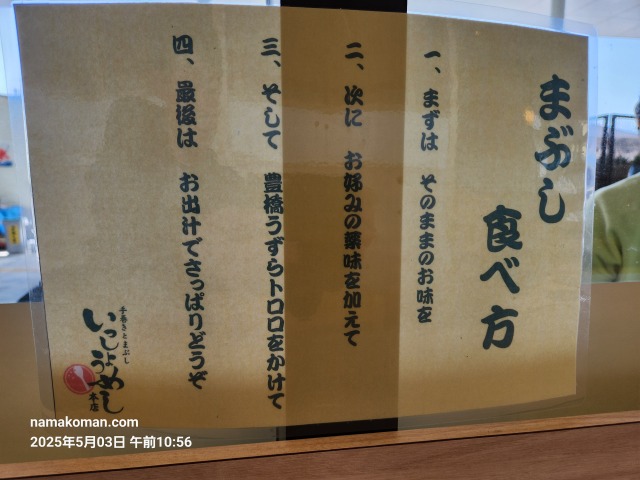 まぶし
食べ方
一、まずは そのままのお味を
二、次に お好みの薬味を加えて
三、そして 豊橋うずらトロロをかけて
四、最後は お出汁でさっぱりどうぞ
手巻きとまぶし
いっしょうめし
本店
namakoman.com
2025年5月03日 午前10:56